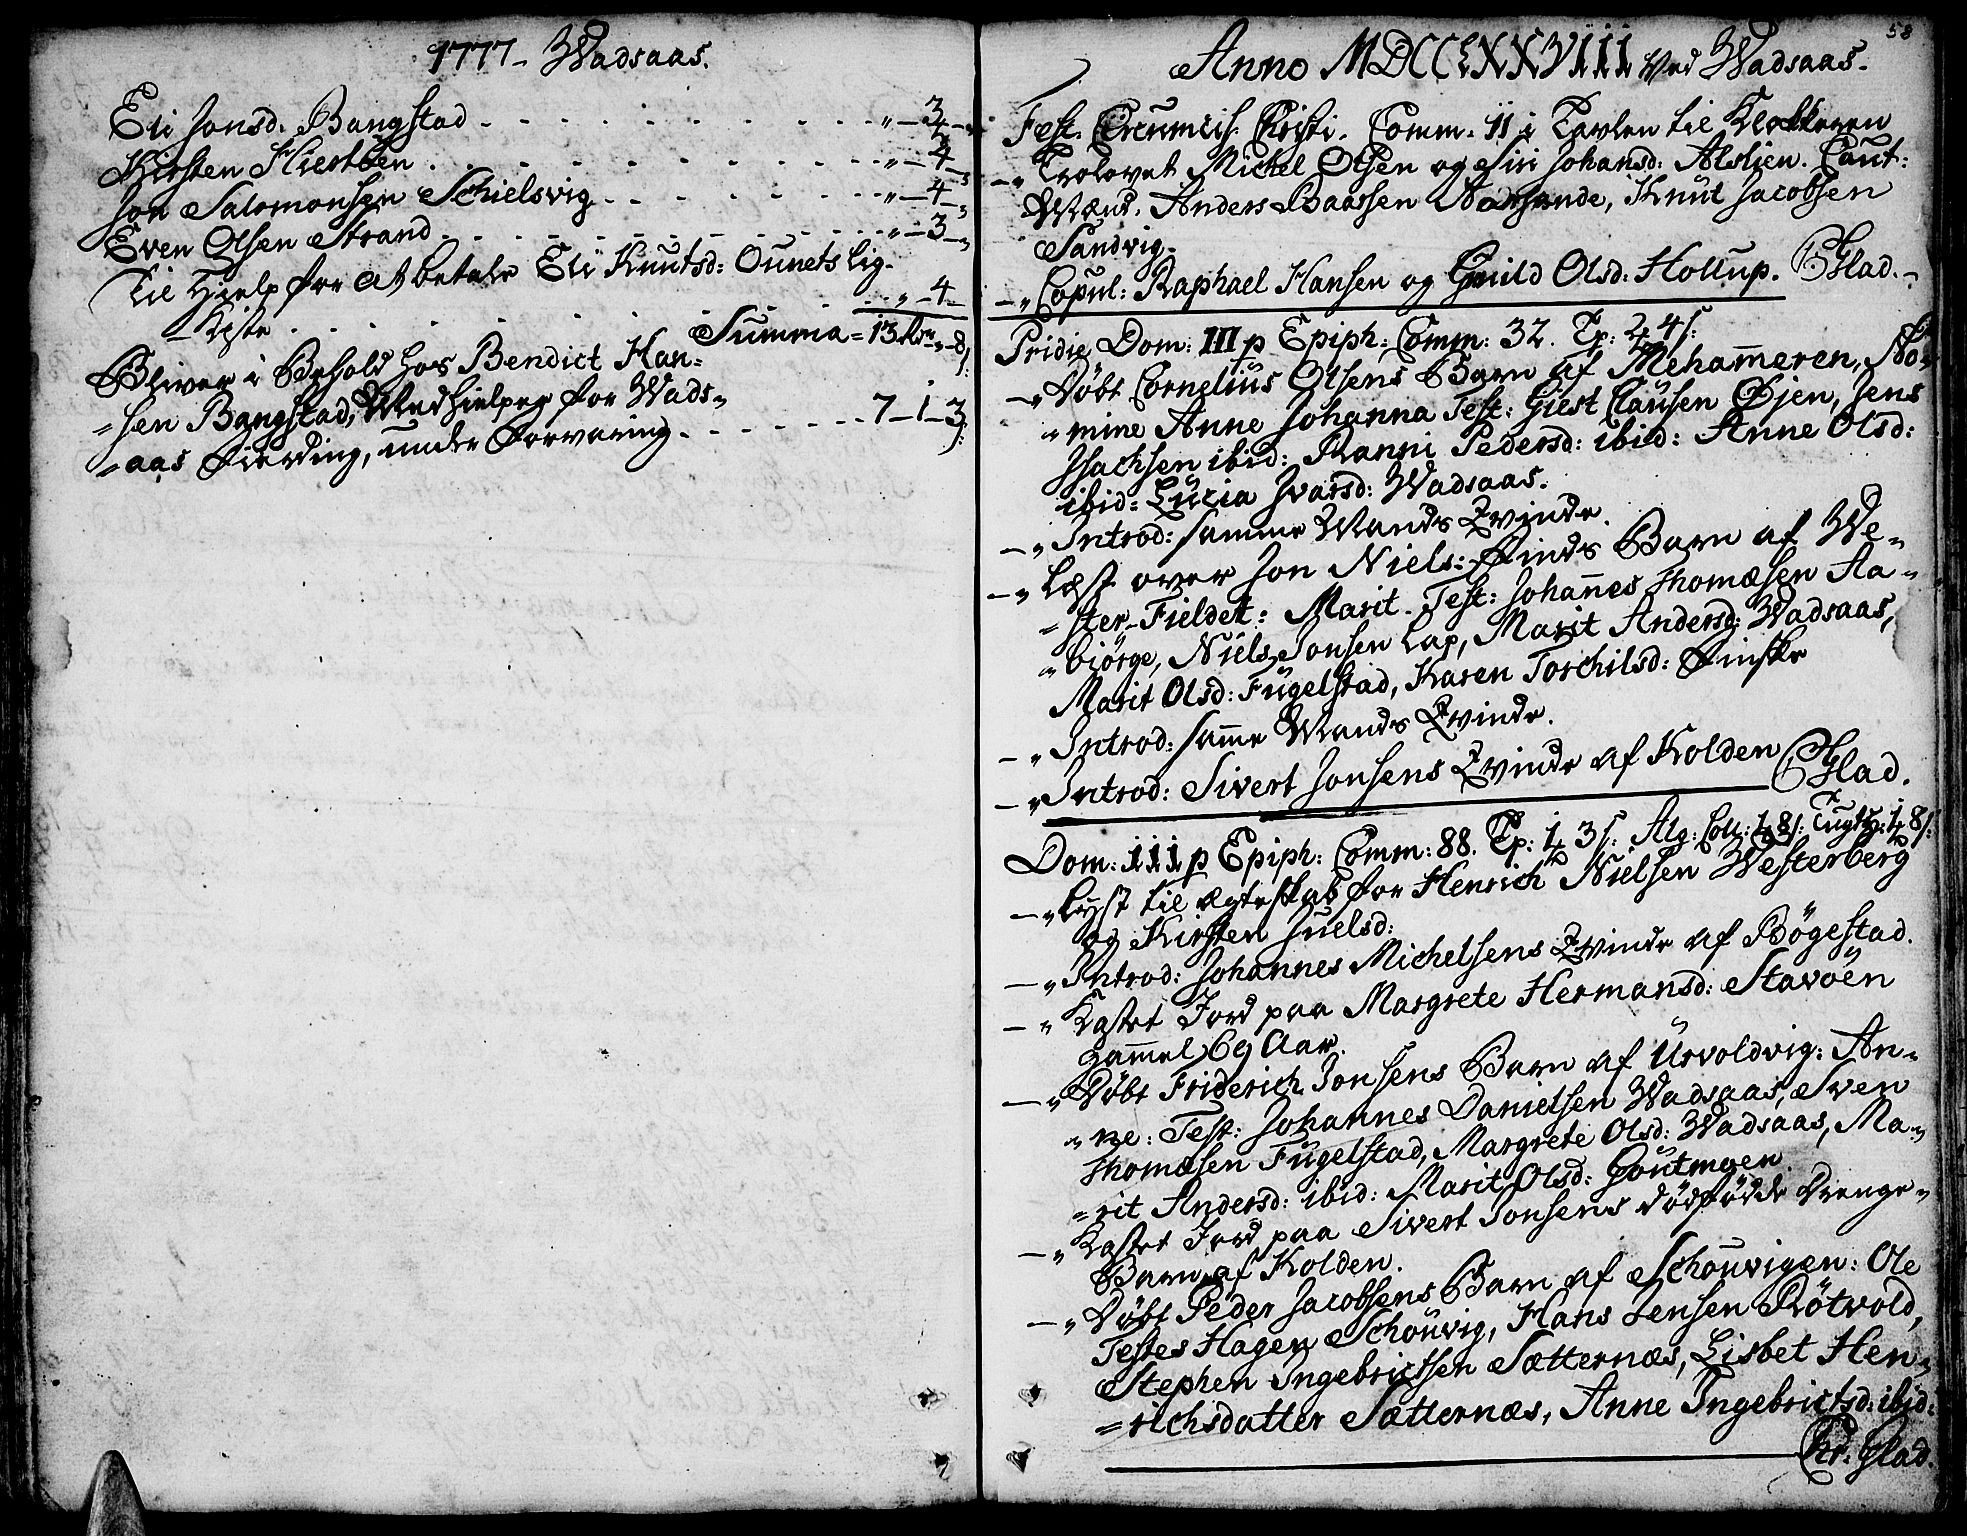 1777 - Wadsaas.
Eli Jonsd. Bangstad . . . . . . „ - 3 -
Kirsten Hiestøen . . . . . . „ - 4 -
Jon Salomonsen Schielsvig . . . . . . „ - 4 -
Even Olsen Strand . . . . . . „ - 3 -
Til Hielp for at betale Eli Knutsd: Ounets Lig-
Kiste . . . . . . „ - 4 -
Summa = 13 „ - 8
Bliver i Behold hos Bendict Han=
=sen Bangstad, Medhielper for Wads=
=aas Fierding, under Forvaring . . . . . . 7 - 1 - 3
58
Anno MDCCLXXVIII Ved Wadsaas.
Fest. Circumcis. Christi. Comm. 11 i Tavlen til Klokkeren
-„ Trolovet Michel Olsen og Siri Johansd: Alslien. Caut:
Mænd. Anders Baassen, Knut Jacobsen
Sandvig.
-„ Copul: Raphael Hansen og Guild Olsd: Hollup. Glad.
Pridie Dom: III p Epiph: Comm: 32. Tp: 2 4
-„ Døbt Cornelius Olsens Barn af Mehammeren, No=
=mine Anne Johanna Test: Giest Clausen Øjen, Jens
Isachsen ibid: Ranni Pedersd: ibid: Anne Olsd:
ibid: Lucia Ivarsd: Wadsaas.
-„ Introd: samme Mands Qvinde.
-„ Læst over Jon Niels: Finds Barn af We=
=ster-Fieldet: Marit. Test: Johannes Thomæsen Aa=
=biørge, Niels Jonsen Lap, Marit Andersd: Wadsaas,
Marit Olsd: Fugelstad, Karen Torchilsd: Finske
-„ Introd: samme Mands Qvinde.
-„ Introd: Sivert Jonsens Qvinde af Kolden Glad.
Dom: III p Epiph: Comm: 88. Tp: 1 3 Alg: Coll: 1 8 Tugth: 1 8
-„ Lyst til Ægteskab for Henrich Nielsen Westerberg
og Kirsten Juelsd:
-„ Introd: Johannes Michelsens Qvinde af Bøgestad.
-„ Kastet Jord paa Margrete Hermansd: Stavøen
gammel 69 Aar.
-„ Døbt Friderich Jonsens Barn af Urvoldvig: An=
=ne: Test: Johannes Danielsen Wadsaas, Sven
Thomæsen Fugelstad, Margrete Olsd: Wadsaas, Ma=
=rit Andersd: ibid: Marit Olsd: Goutmoen
-„ Kastet Jord paa Sivert Jonsens dødfødde Drenge=
Barn af Kolden.
-„ Døbt Peder Jacobsens Barn af Schouvigen: Ole
Testes Hagen Schouvig, Hans Jensen Røtvold,
Stephen Ingebrictsen Sætternæs, Lisbet Hen=
=richsdatter Sætternæs, Anne Ingebrictsd: ibid:
Chr: Glad.